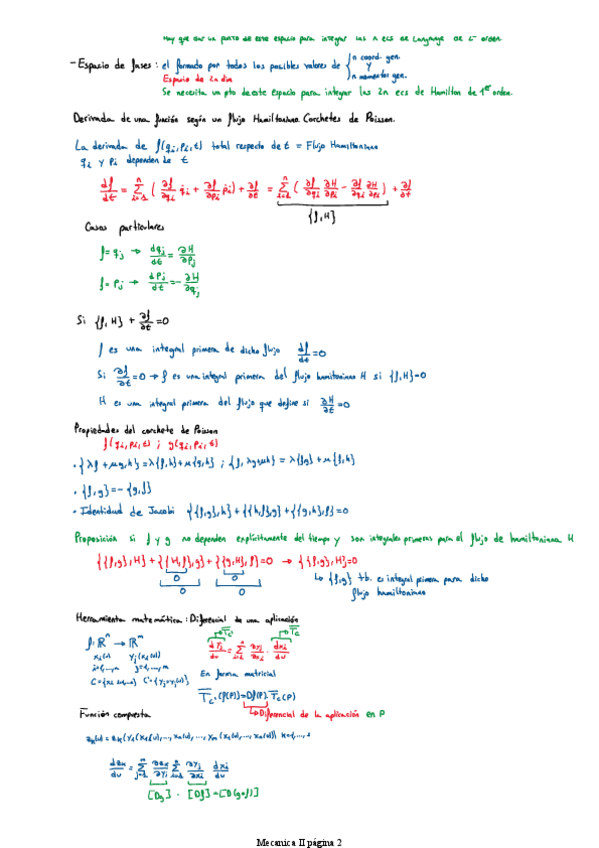 Hay que dar un punto de este espacio para integrar las n ecs de Lagrange de 2º orden
- Espacio de fases: el formado por todos los posibles valores de { n coord. gen. y n momentos gen.
Espacio de 2n dim
Se necesita un pto de este espacio para integrar las 2n ecs de Hamilton de 1er orden.
Derivada de una función según un flujo Hamiltoniano. Corchetes de Poisson.
La derivada de f(qi,pi,t) total respecto de t = Flujo Hamiltoniano
qi y pi dependen de t
df/dt = Σ_{i=1}^{n} ( ∂f/∂qi q̇i + ∂f/∂pi ṗi ) + ∂f/∂t = Σ_{i=1}^{n} ( ∂f/∂qi ∂H/∂pi - ∂f/∂pi ∂H/∂qi ) + ∂f/∂t
{f,H}
Casos particulares
f = qj → dqj/dt = ∂H/∂pj
f = pj → dpj/dt = - ∂H/∂qj
Si {f,H} + ∂f/∂t = 0
f es una integral primera de dicho flujo df/dt = 0
Si ∂f/∂t = 0 → f es una integral primera del flujo hamiltoniano H si {f,H} = 0
H es una integral primera del flujo que define si ∂H/∂t = 0
Propiedades del corchete de Poisson
f(qi,pi,t) ; g(qi,pi,t)
· {λf + μg,h} = λ{f,h} + μ{g,h} ; {f, λg+μh} = λ{f,g} + μ{f,h}
· {f,g} = - {g,f}
· Identidad de Jacobi {{f,g},h} + {{h,f},g} + {{g,h},f} = 0
Proposición si f y g no dependen explícitamente del tiempo y son integrales primeras para el flujo de hamiltoniana H
{{f,g},H} + {{H,f},g} + {{g,H},f} = 0 → {{f,g},H} = 0
0 0
0 0
↳ {f,g} tb. es integral primera para dicho
flujo hamiltoniano
Herramienta matemática: Diferencial de una aplicación
f: ℝⁿ → ℝᵐ
xi(u) yj(xi(u))
i=1,...,n j=1,...,m
dyj/du = Σ_{i=1}^{n} ∂yj/∂xi · dxi/du
En forma matricial
T̄c'(f(P)) = Df(P) · T̄c(P)
↳ Diferencial de la aplicación en P
Función compuesta
zk(u) = zk(y1(x1(u),...,xn(u)),...,ym(x1(u),...,xn(u))) k=1,...,s
dzk/du = Σ_{j=1}^{m} ∂zk/∂yj Σ_{i=1}^{n} ∂yj/∂xi dxi/du
[Dg] · [Df] = [D(g∘f)]
Mecanica II página 2